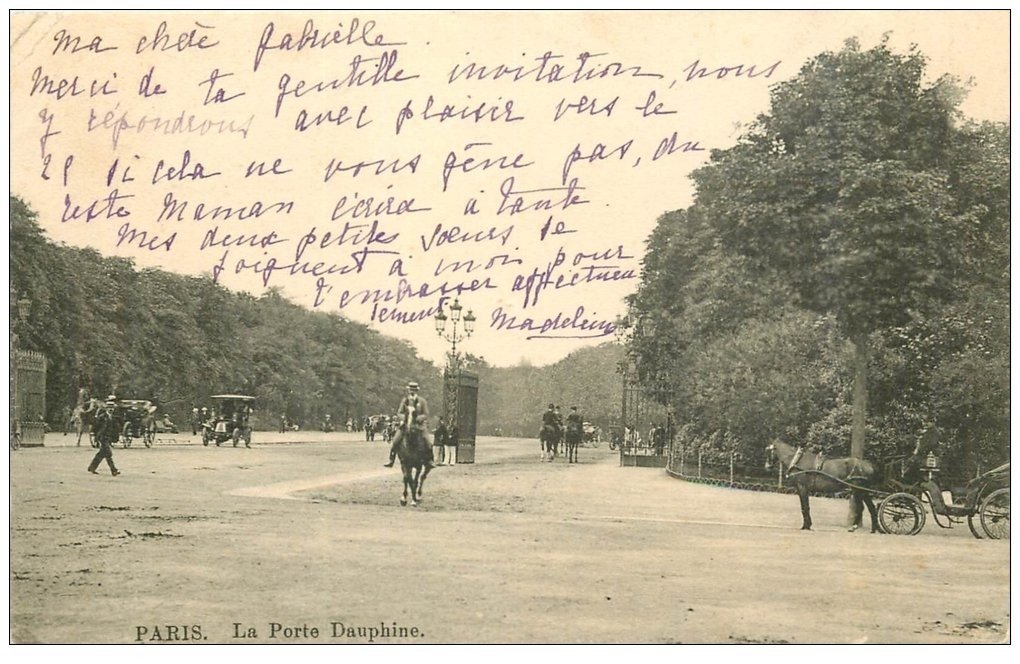 Ma chère Gabrielle.
Merci de ta gentille invitation, nous
y répondrons avec plaisir vers le
si cela ne vous gêne pas, du
reste Maman écrira à tante.
Mes deux petites sœurs se
joignent à moi pour
t'embrasser affectueu
sement Madeleine
PARIS. La Porte Dauphine.